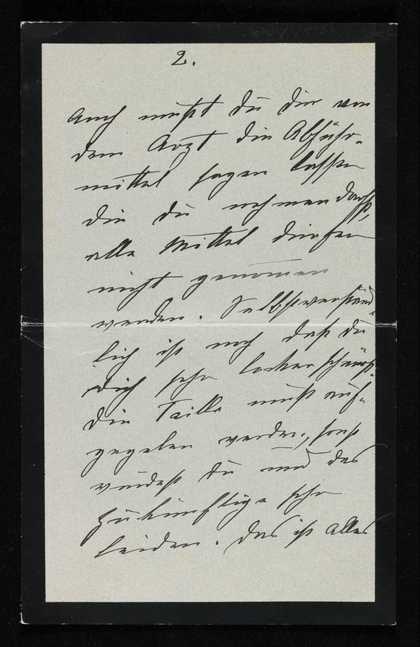 2.
Auch mußt du dir von
dem Arzt die Abführ-
mittel sagen lassen
die du nehmen darfst,
alle Mittel dürfen
nicht genommen
werden. Selbstverständ-
lich ist noch daß du
dich sehr locker schnürst.
die Taille muß auf-
gegeben werden, sonst
würdest du und das
zukünftige sehr
leiden. Das ist alles